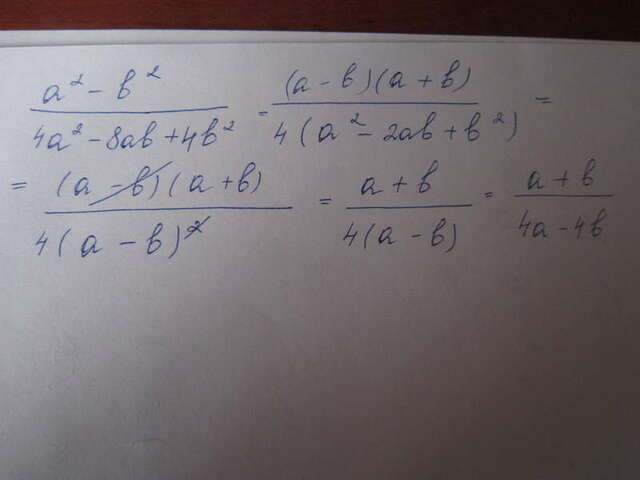 (a² - b²)/(4a² - 8ab + 4b²) = ((a - b)(a + b))/(4(a² - 2ab + b²)) =
= ((a - b)(a + b))/(4(a - b)²) = (a + b)/(4(a - b)) = (a + b)/(4a - 4b)